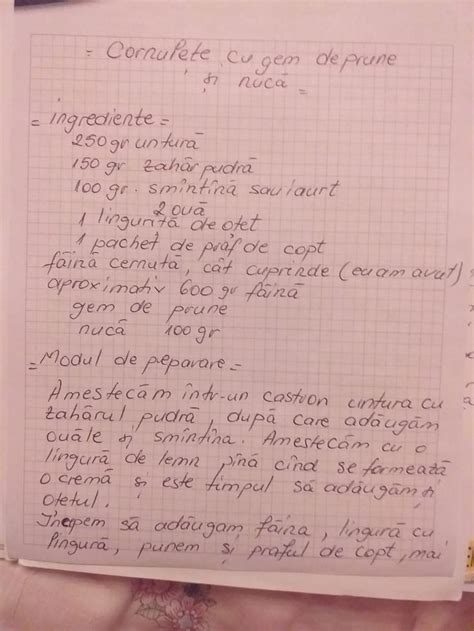 = Cornulete cu gem de prune
și nucă =
= ingrediente =
250 gr untură
150 gr zahăr pudră
100 gr. smîntînă sau iaurt
2 ouă
1 linguriță de oțet
1 pachet de praf de copt
făină cernută, cât cuprinde (eu am avut)
aproximativ 600 gr făină
gem de prune
nucă 100 gr
= Modul de peparare =
Amestecăm într-un castron untura cu
zahărul pudră, după care adăugăm
ouăle și smîntîna. Amestecăm cu o
lingură de lemn pînă cînd se formează
o cremă și este timpul să adăugăm și
oțetul.
Începem să adăugam făina, lingură cu
lingură, punem și praful de copt, mai